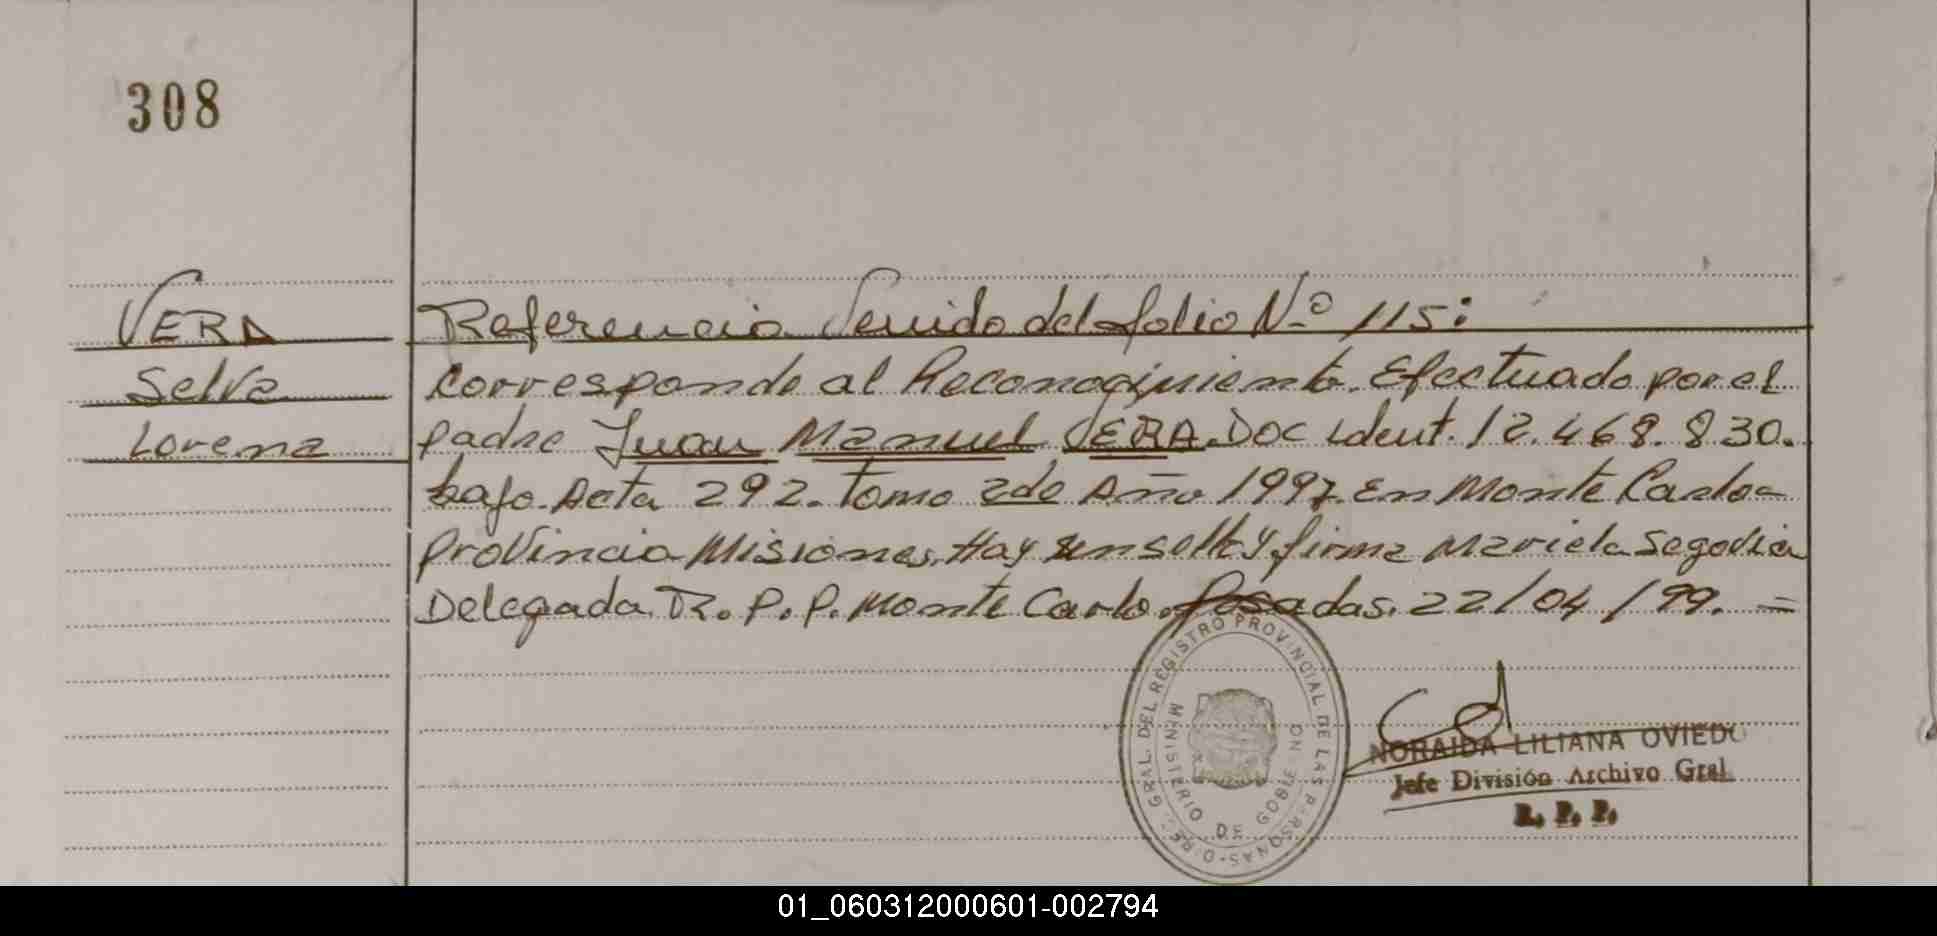 308
VERA
Selva
Lorena
Referencia Venido del folio N.o 115:
Corresponde al Reconocimiento. Efectuado por el
padre Juan Manuel VERA. Doc ident. 12.468.830.
bajo Acta 292. Tomo 2do Año 1997. En Monte Carlo-
Provincia Misiones. Hay un sello y firma Mariela Segovia
Delegada R.P.P. Monte Carlo. Posadas. 22/04/99. =
DIREC. GRAL. DEL REGISTRO PROVINCIAL DE LAS PERSONAS
MINISTERIO DE GOBIERNO
NORAIDA LILIANA OVIEDO
Jefe División Archivo Gral.
R. P. P.
01_060312000601-002794